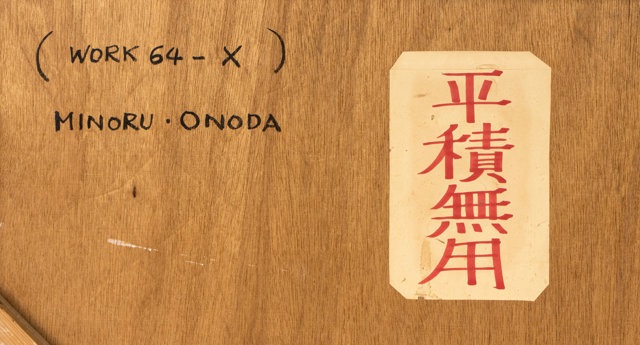 ( WORK 64 - X )
MINORU · ONODA
平積無用